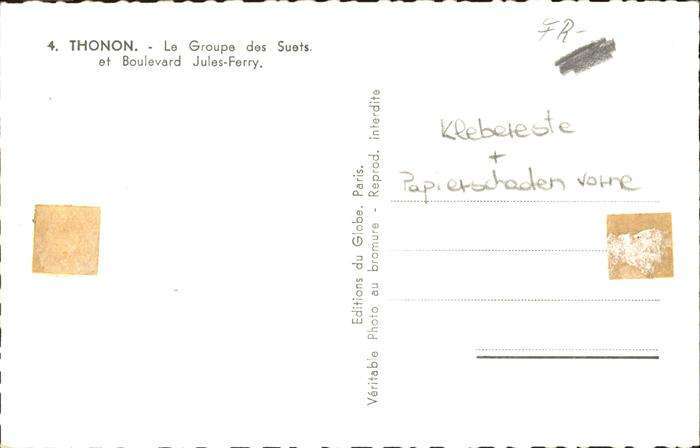 4. THONON. - Le Groupe des Suets.
et Boulevard Jules-Ferry.
FR-
Klebereste
+
Papierschaden vorne
Editions du Globe, Paris.
Véritable Photo au bromure - Reprod. interdite